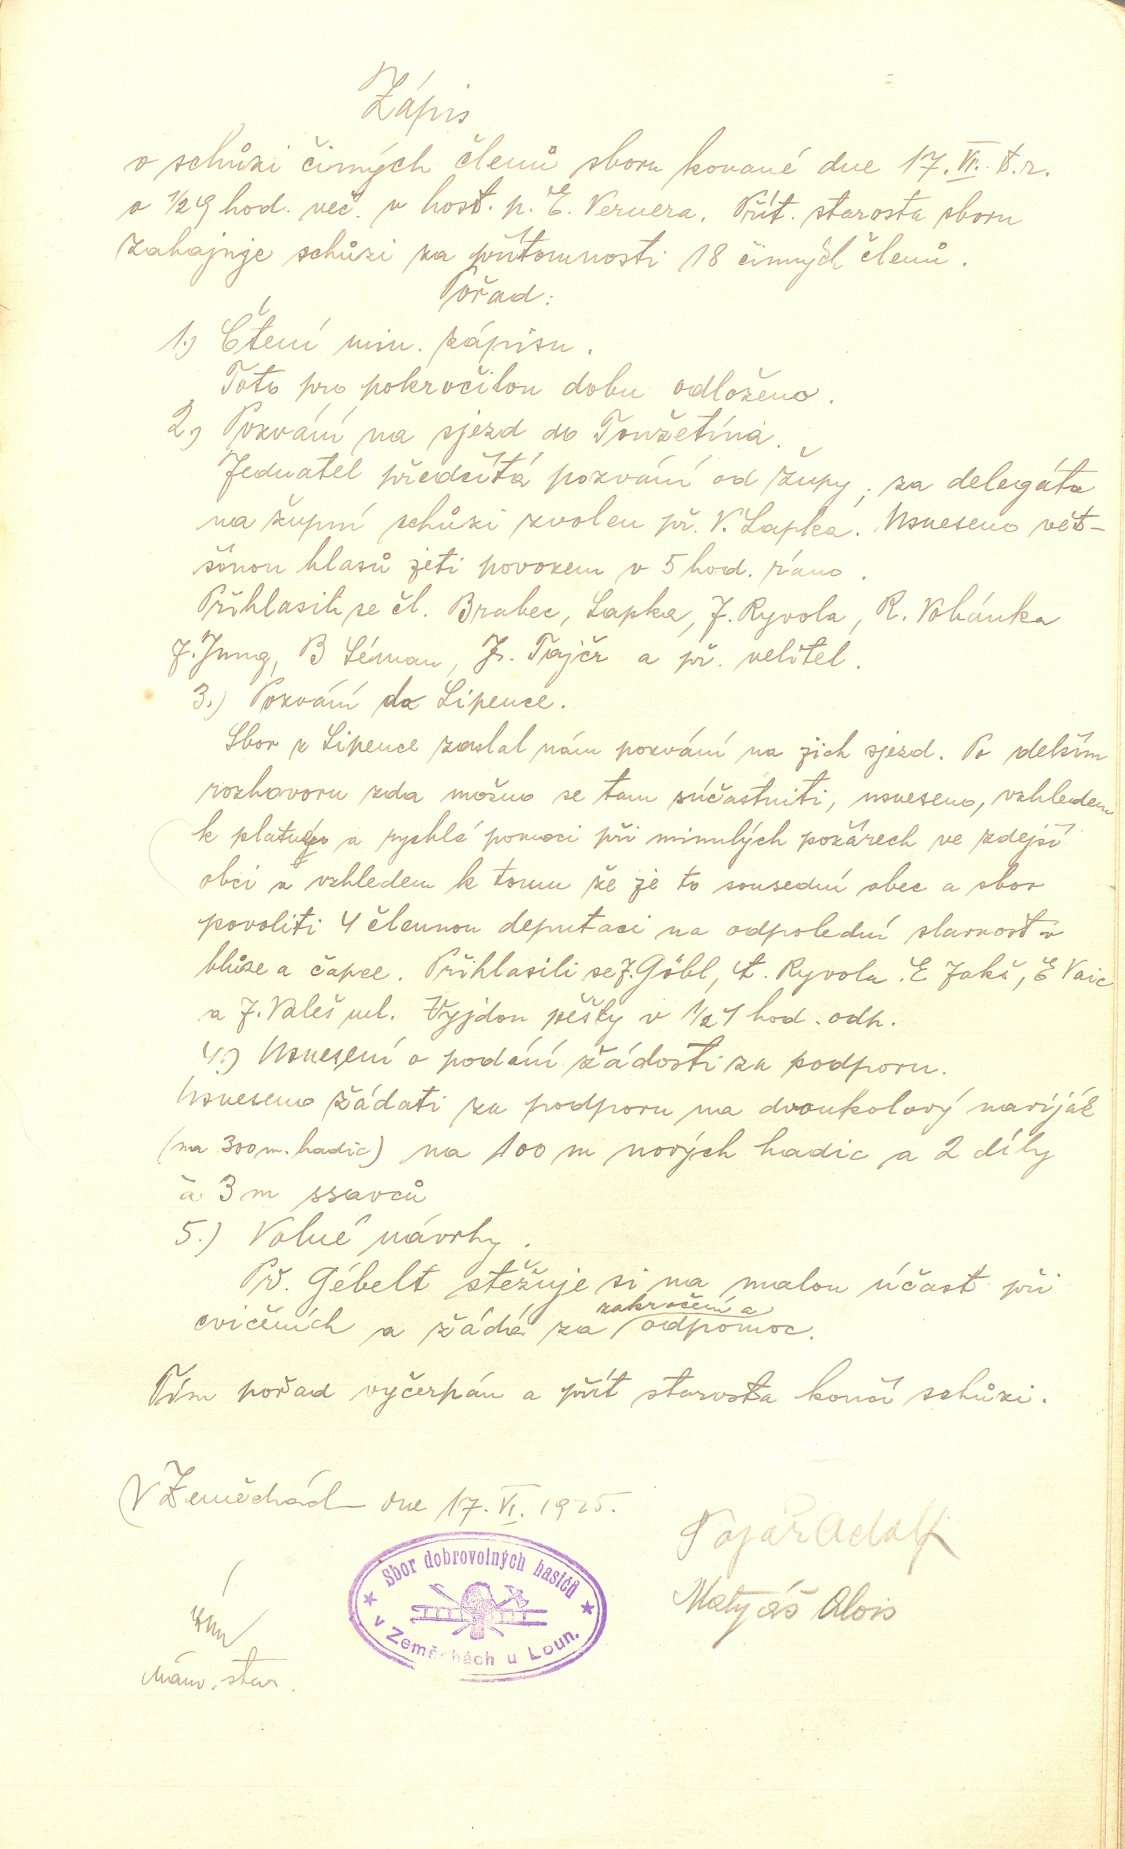 Zápis
o schůzi činných členů sboru konané dne 17. VI. t.r.
o 1/2 9 hod. več. v host. p. E. Vernera. Přít. starosta sboru
zahajuje schůzi za přítomnosti 18 činných členů.
Pořad:
1.) Čtení min. zápisu.
Toto pro pokročilou dobu odloženo.
2.) Pozvání na sjezd do Toužetína.
Jednatel předčítá pozvání od župy, za delegáta
na župní schůzi zvolen př. V. Lapka. Usneseno vět-
šinou hlasů jeti povozem v 5 hod. ráno.
Přihlasili se čl. Brabec, Lapka, J. Ryvola, R. Vohánka
J. Jung, B Léman, J. Tajčr a př. velitel.
3.) Pozvání do Lipence.
Sbor z Lipence zaslal nám pozvání na jich sjezd. Po delším
rozhovoru zda možno se tam súčastniti, usneseno, vzhledem
k platné a rychlé pomoci při minulých požárech ve zdejší
obci a vzhledem k tomu že je to sousední obec a sbor
povoliti 4 člennou deputaci na odpolední slavnost v
blůze a čapce. Přihlasili se J. Göbl, A. Ryvola. E Jakš, E Vaic
a J. Valeš ml. Vyjdou pěšky v 1/2 1 hod. odp.
4.) Usnesení o podání žádosti za podporu.
Usneseno žádati za podporu na dvoukolový naviják
(na 300 m. hadic) na 100 m nových hadic a 2 díly
à 3 m ssavců
5.) Volné návrhy.
Př. Gébelt stěžuje si na malou účast při
cvičeních a žádá za zakročení a odpomoc.
Tím pořad vyčerpán a přít starosta končí schůzi.
V Zeměchách dne 17. VI. 1925.
Pojar Adolf
Sbor dobrovolných hasičů
v Zeměchách u Loun.
Matyáš Alois
nám. star.